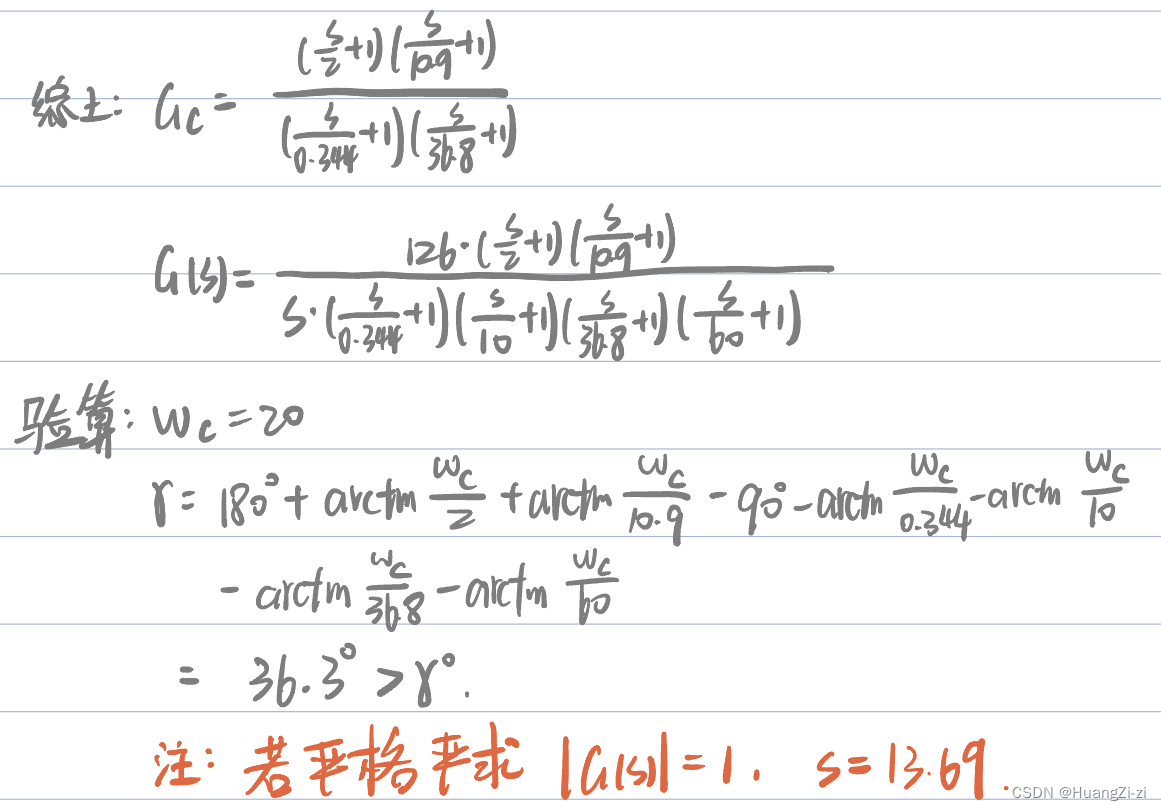 综上: Gc = ((s/2+1)(s/10.9+1)) / ((s/0.344+1)(s/36.8+1))
G(s)= (126·(s/2+1)(s/10.9+1)) / (s·(s/0.344+1)(s/10+1)(s/36.8+1)(s/60+1))
验算: wc = 20
γ = 180° + arctan wc/2 + arctan wc/10.9 - 90° - arctan wc/0.344 - arctan wc/10
- arctan wc/36.8 - arctan wc/60
= 36.3° > γ°.
注: 若严格要求 |G(s)| = 1. s = 13.69.
CSDN @HuangZi-zi